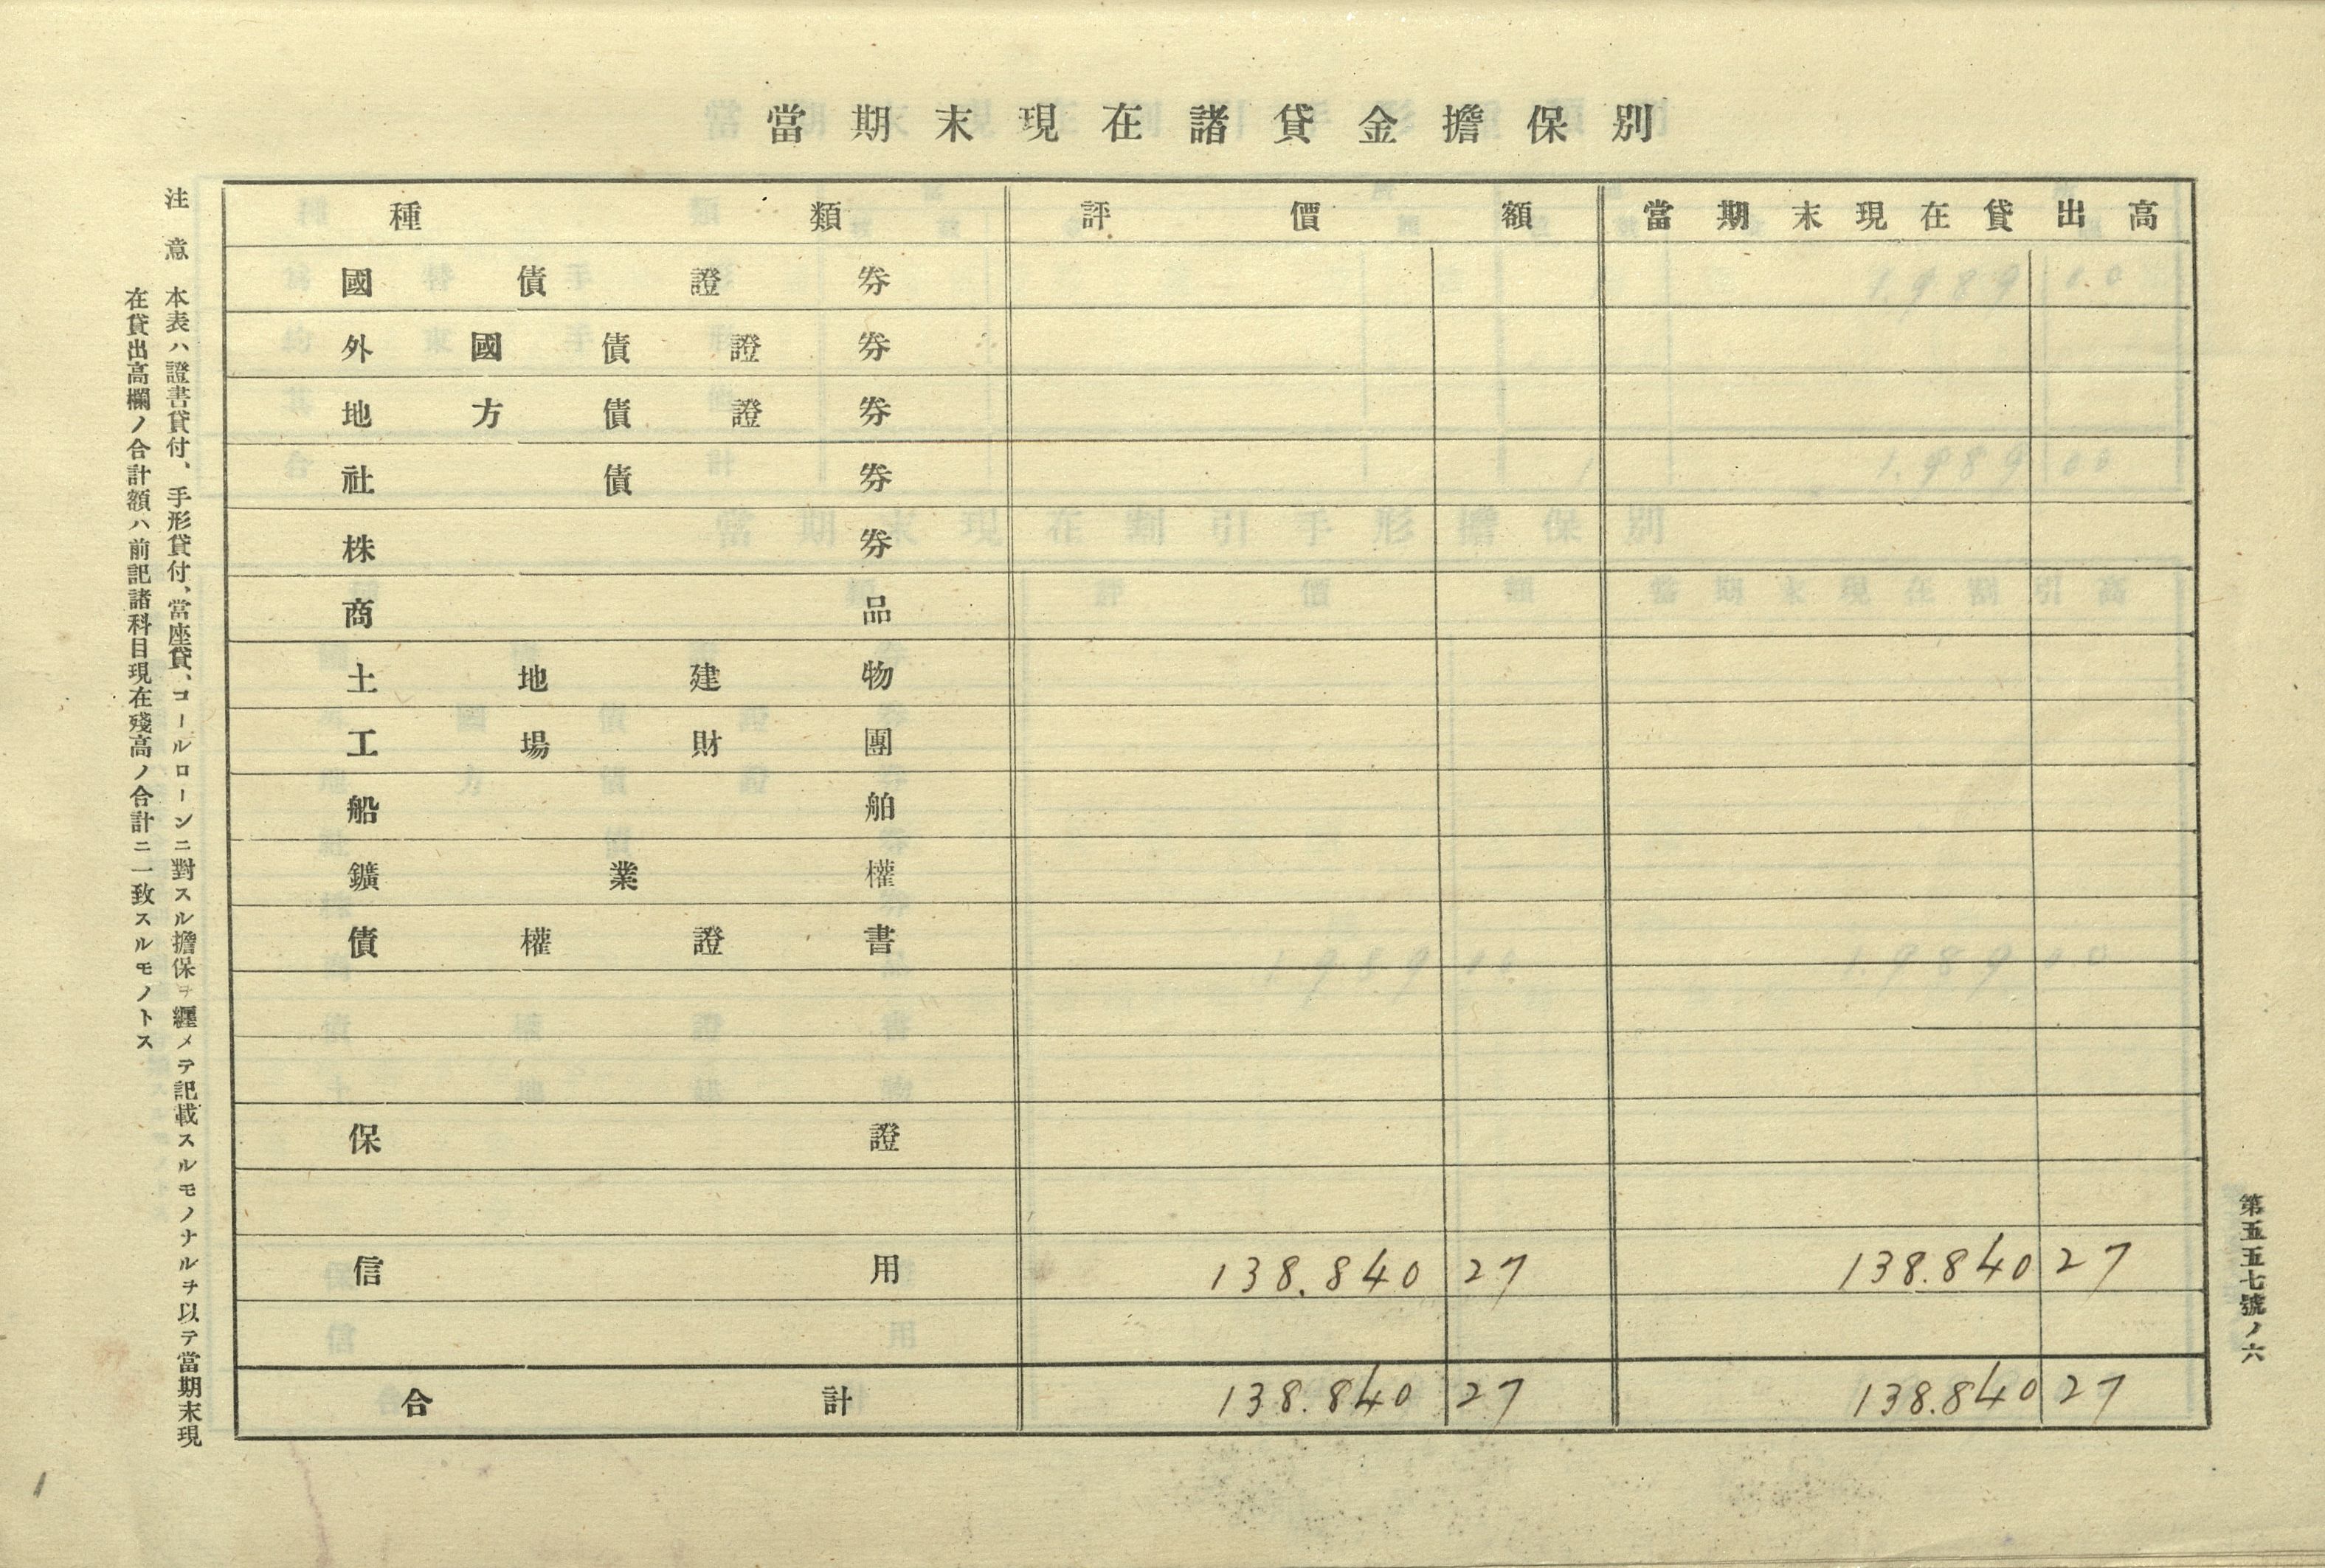 當期末現在諸貸金擔保別
種類 評價額 當期末現在貸出高
國債證券
外國債證券
地方債證券
社債券
株券
商品
土地建物
工場財團
船舶
鑛業權
債權證書
保證
信用 138.840 27 138.840 27
合計 138.840 27 138.840 27
注意 本表ハ證書貸付、手形貸付、當座貸、コールローンニ對スル擔保ヲ纒メテ記載スルモノナルヲ以テ當期末現
在貸出高欄ノ合計額ハ前記諸科目現在殘高ノ合計ニ一致スルモノトス
第五五七號ノ六